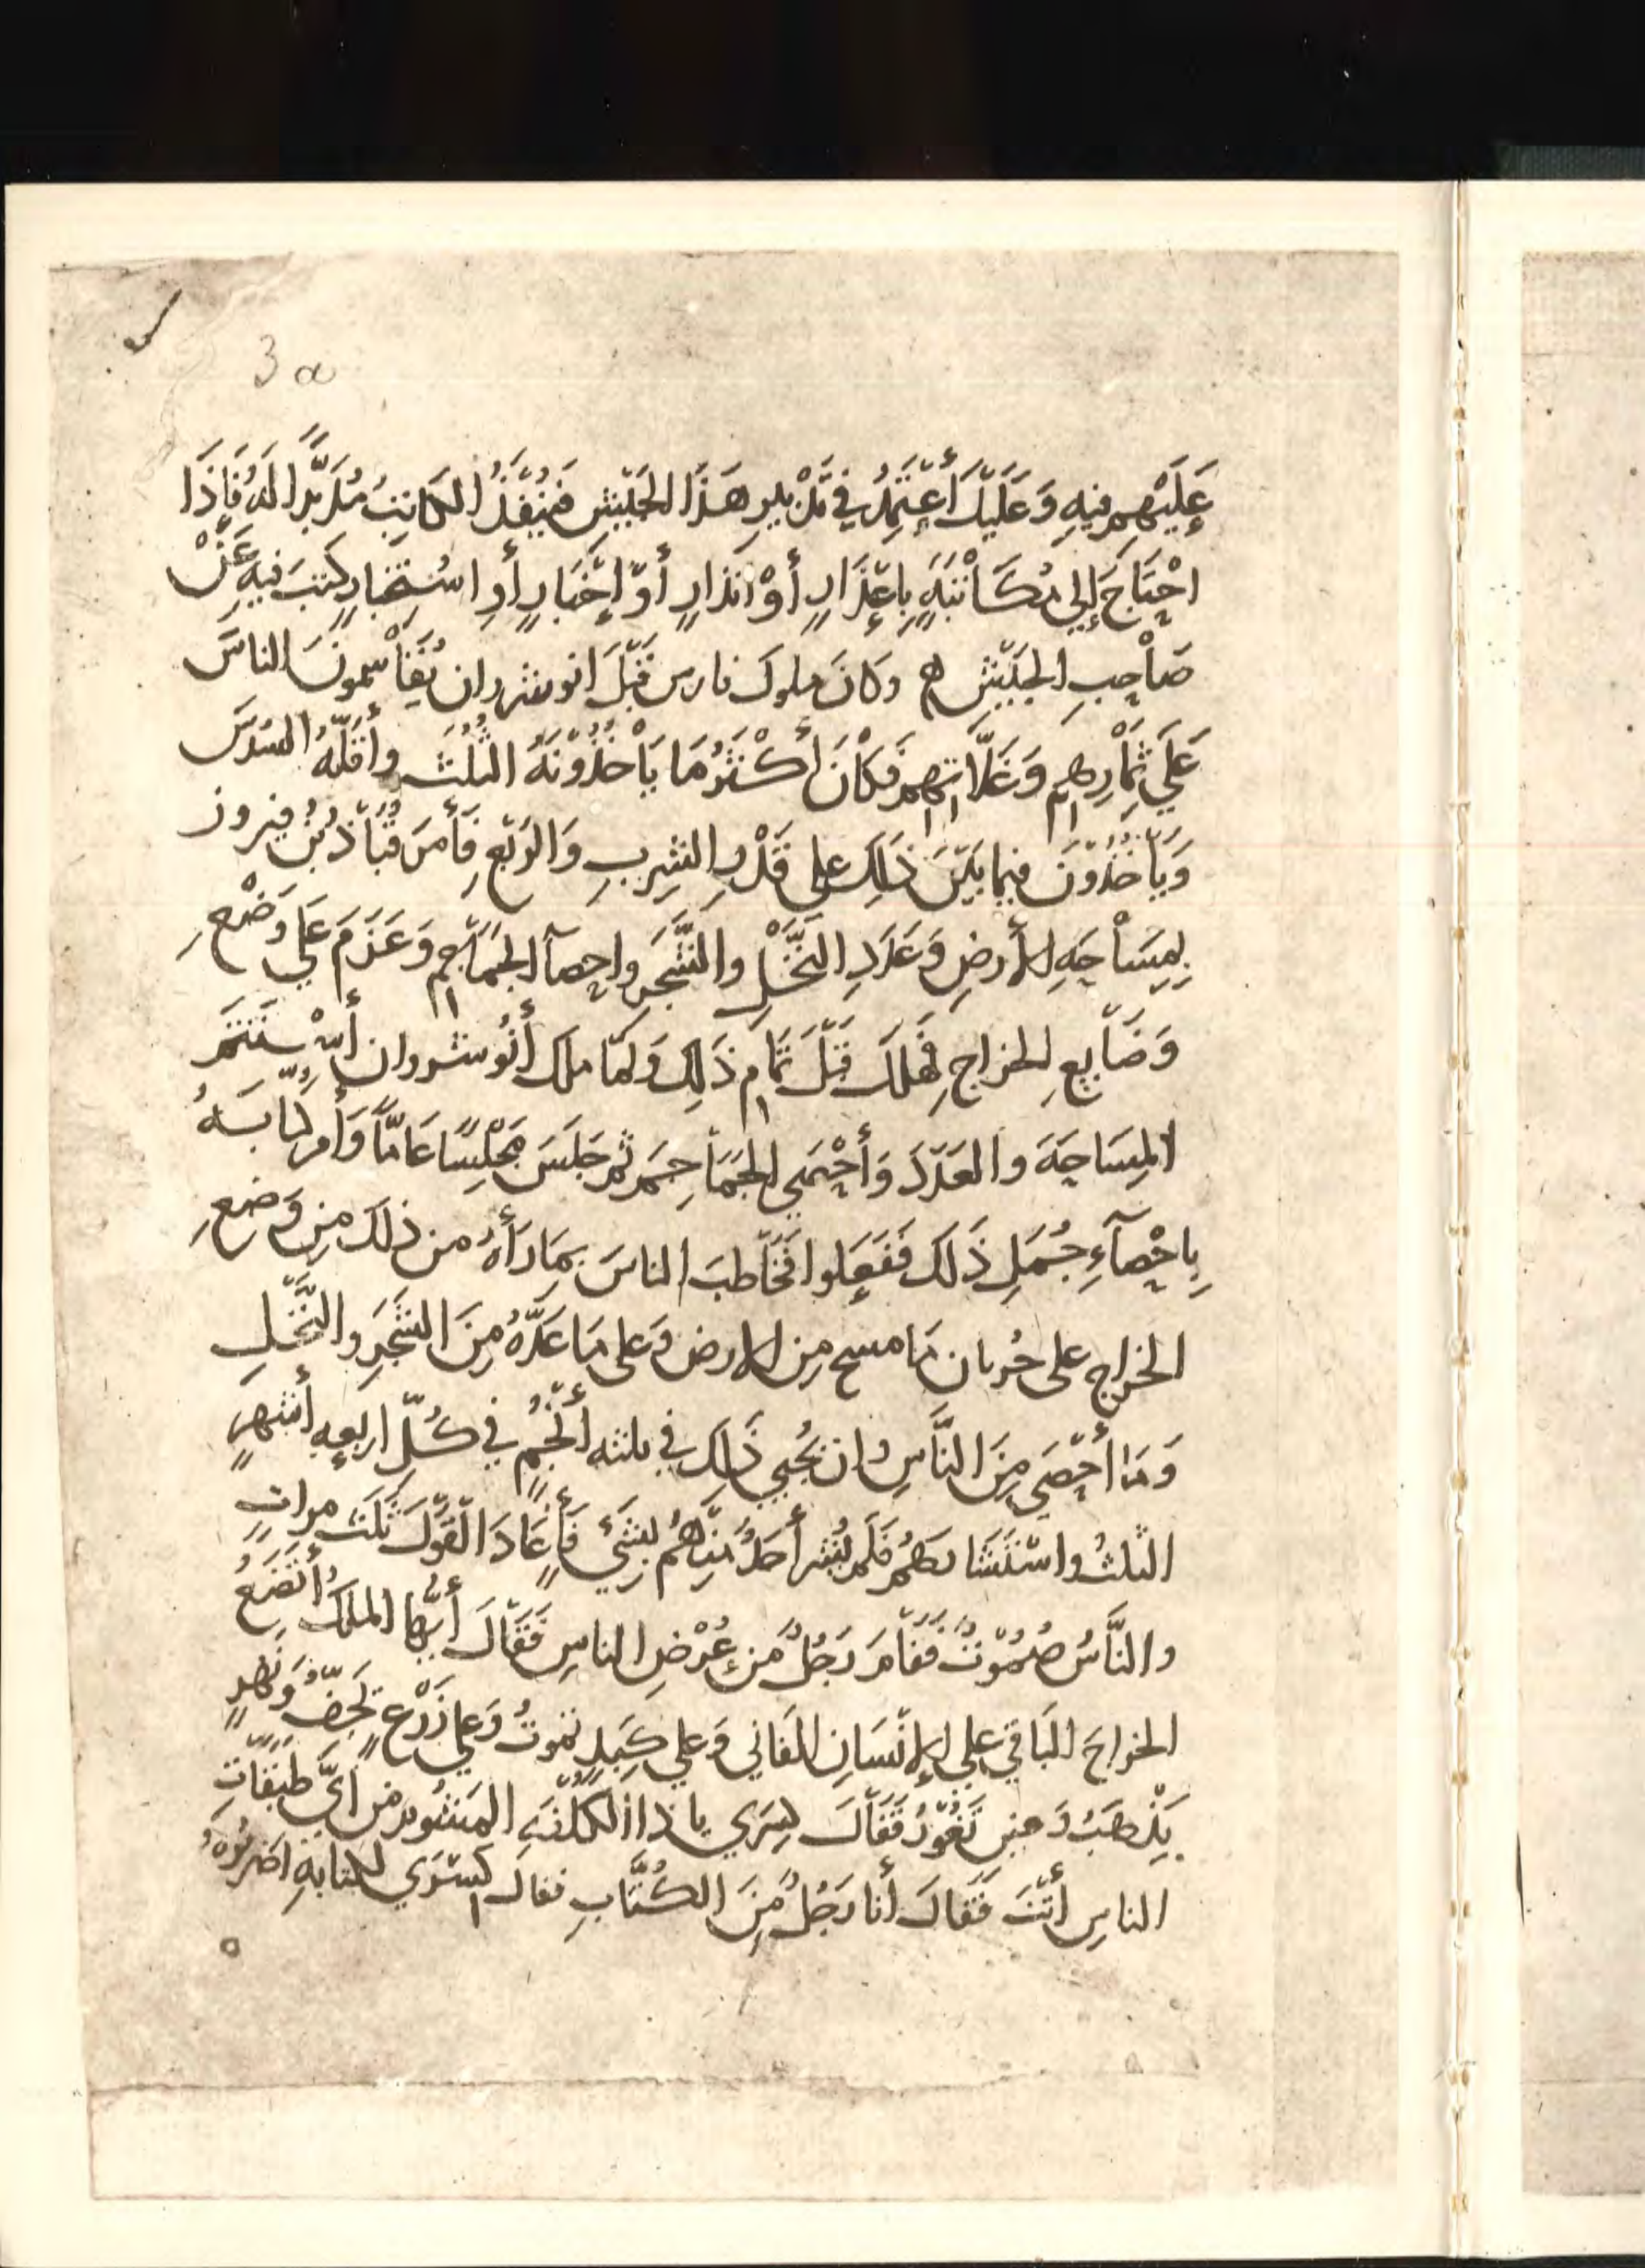 3a
عَلَيْهِم فيهِ وَعَلَيْكَ أَعْتَمِدُ في تَدْبيرِ هَذَا الجَيْشِ فَيُنْفِذُ الكاتِبُ مُدَبِّرًا لَهُ فَاِذَا
احْتَاجَ إِلي مُكَاتَبَةٍ بِاِعْذَارٍ أَوْ انذارٍ أَوْ إِخْبَارٍ أَوِ اسْتِخْبارٍ كتبَ فيهِ عَنْ
صَاحِبِ الجَيْشِ وكانَ ملوك فارس قَبْلَ انوشروان يُقَاسِمونَ الناسَ
عَلَي ثِمَارِهِم وَغَلَّاتِهم فَكَانَ أَكْثَرُ مَا يَأْخُذُونَهُ الثُلُثَ وأَقَلّهُ السُدسَ
وَيَأْخُذُونَ فيما بَيْنَ ذَلِكَ علي قَدْرِ الشِربِ وَالرَيْعِ فَأَمَرَ قُبَاذُ بْنُ فيروز
بِمِسَاحَةِ الأَرضِ وَعَدَدِ النَخْلِ والشَّجَرِ واِحصآ الجَمَاجِم وَعَزَمَ عَلَي وَضْعِ
وَضَايِعِ الخراجِ فَهَلَكَ قَبْلَ تَمَامِ ذَلِكَ وَلَمّا ملك أَنُوشروان أَسْتَتَمَر
المِسَاحَةَ والعَدَدَ وَأَحْصَي الجَمَاجِمَ ثُم جَلَسَ مَجْلِسًا عَامًّا وَأَمر كُتابَهُ
بِاِحْصآءِ جُمَلِ ذَلكَ فَفَعَلوا فَخَاطبَ الناسَ بِمَا رَأَهُ من ذلكَ مِن وَضعِ
الخراجِ على جُربان مَا مسح مِن الارض وَعلى مَا عَدَّهُ مِنَ الشَجَرِ والنَّخْلِ
وَمَا أَحْصَي مِنَ النَّاسِ وان يُجْبي ذَلِكَ في ثلثه أَنْجُمٍ في كُلّ اربعه أَشهرٍ
الثلثُ واسْتَشَارهُم فَلَم يُشِر أَحَدٌ مِنْهُم بِشَيْءٍ فَأَعَادَ القَوْلَ ثَلَثَ مراتٍ
والنَّاسُ صُمُوْتٌ فَقَامَ رَجُلٌ مِن عُرْضِ الناسِ فَقَالَ أَيُّها الملكُ أَتَضَعُ
الخراجَ البَاقي علي الإِنْسَانِ الفَاني وَعلي كَبِدٍ تموتُ وَعلي زَرْعٍ يَجِفُّ وَنَهْرٍ
يَذْهَبُ وَعينٍ تَغُوْرُ فَقَالَ كِسْرَي ياذا الكُلْفَةِ المَشُوم من ايّ طَبَقَاتِ
الناسِ أَنْتَ فَقَالَ أَنا رَجُلٌ مِنَ الكُتَّابِ فقال كِسْرَي للكتابه اضربُوهُ